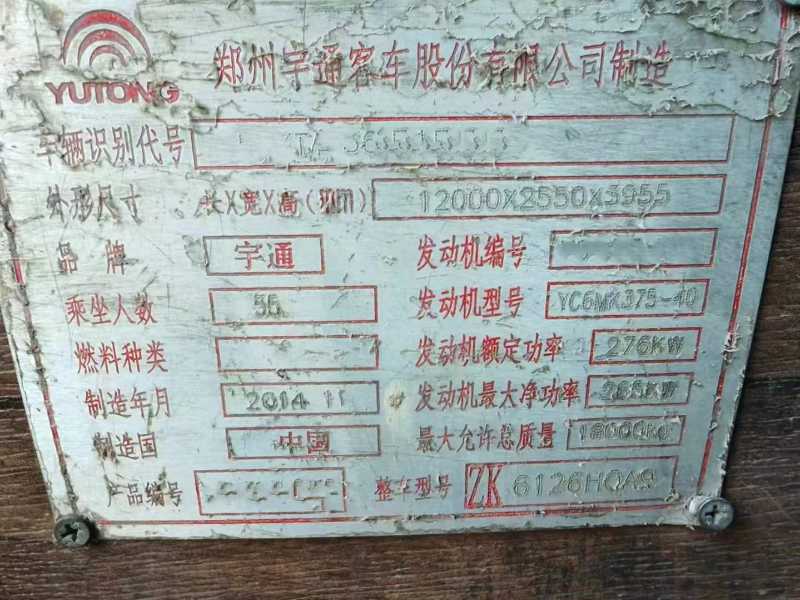 YUTONG
郑州宇通客车股份有限公司制造
车辆识别代号
外形尺寸 长X宽X高(mm) 12000X2550X3955
品牌 宇通 发动机编号
乘坐人数 56 发动机型号 YC6MK375-40
燃料种类 发动机额定功率 276KW
制造年月 2014 11 发动机最大净功率 265KW
制造国 中国 最大允许总质量 18000kg
产品编号 整车型号 ZK 6126HQA9